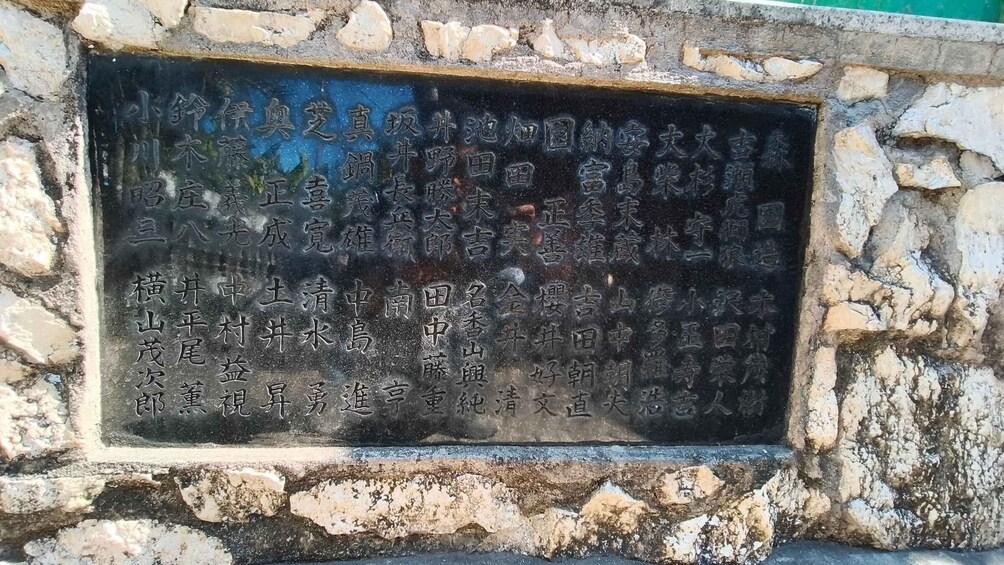 森 國
大杉守一 小玉寿吉
大柴 林 修多羅 浩
安島末蔵 山中朝夫
納富 雄 吉田朝直
園 正善 櫻井好文
畑田 実 金井 清
池田末吉 名香山興純
井野勝太郎 田中藤重
坂井長兵衛 南 亨
真鍋茂雄 中島 進
芝 喜寛 清水 勇
奥 正成 土井 昇
伊張義光 中村益視
鈴木庄八 井平尾 薫
小川昭三 横山茂次郎